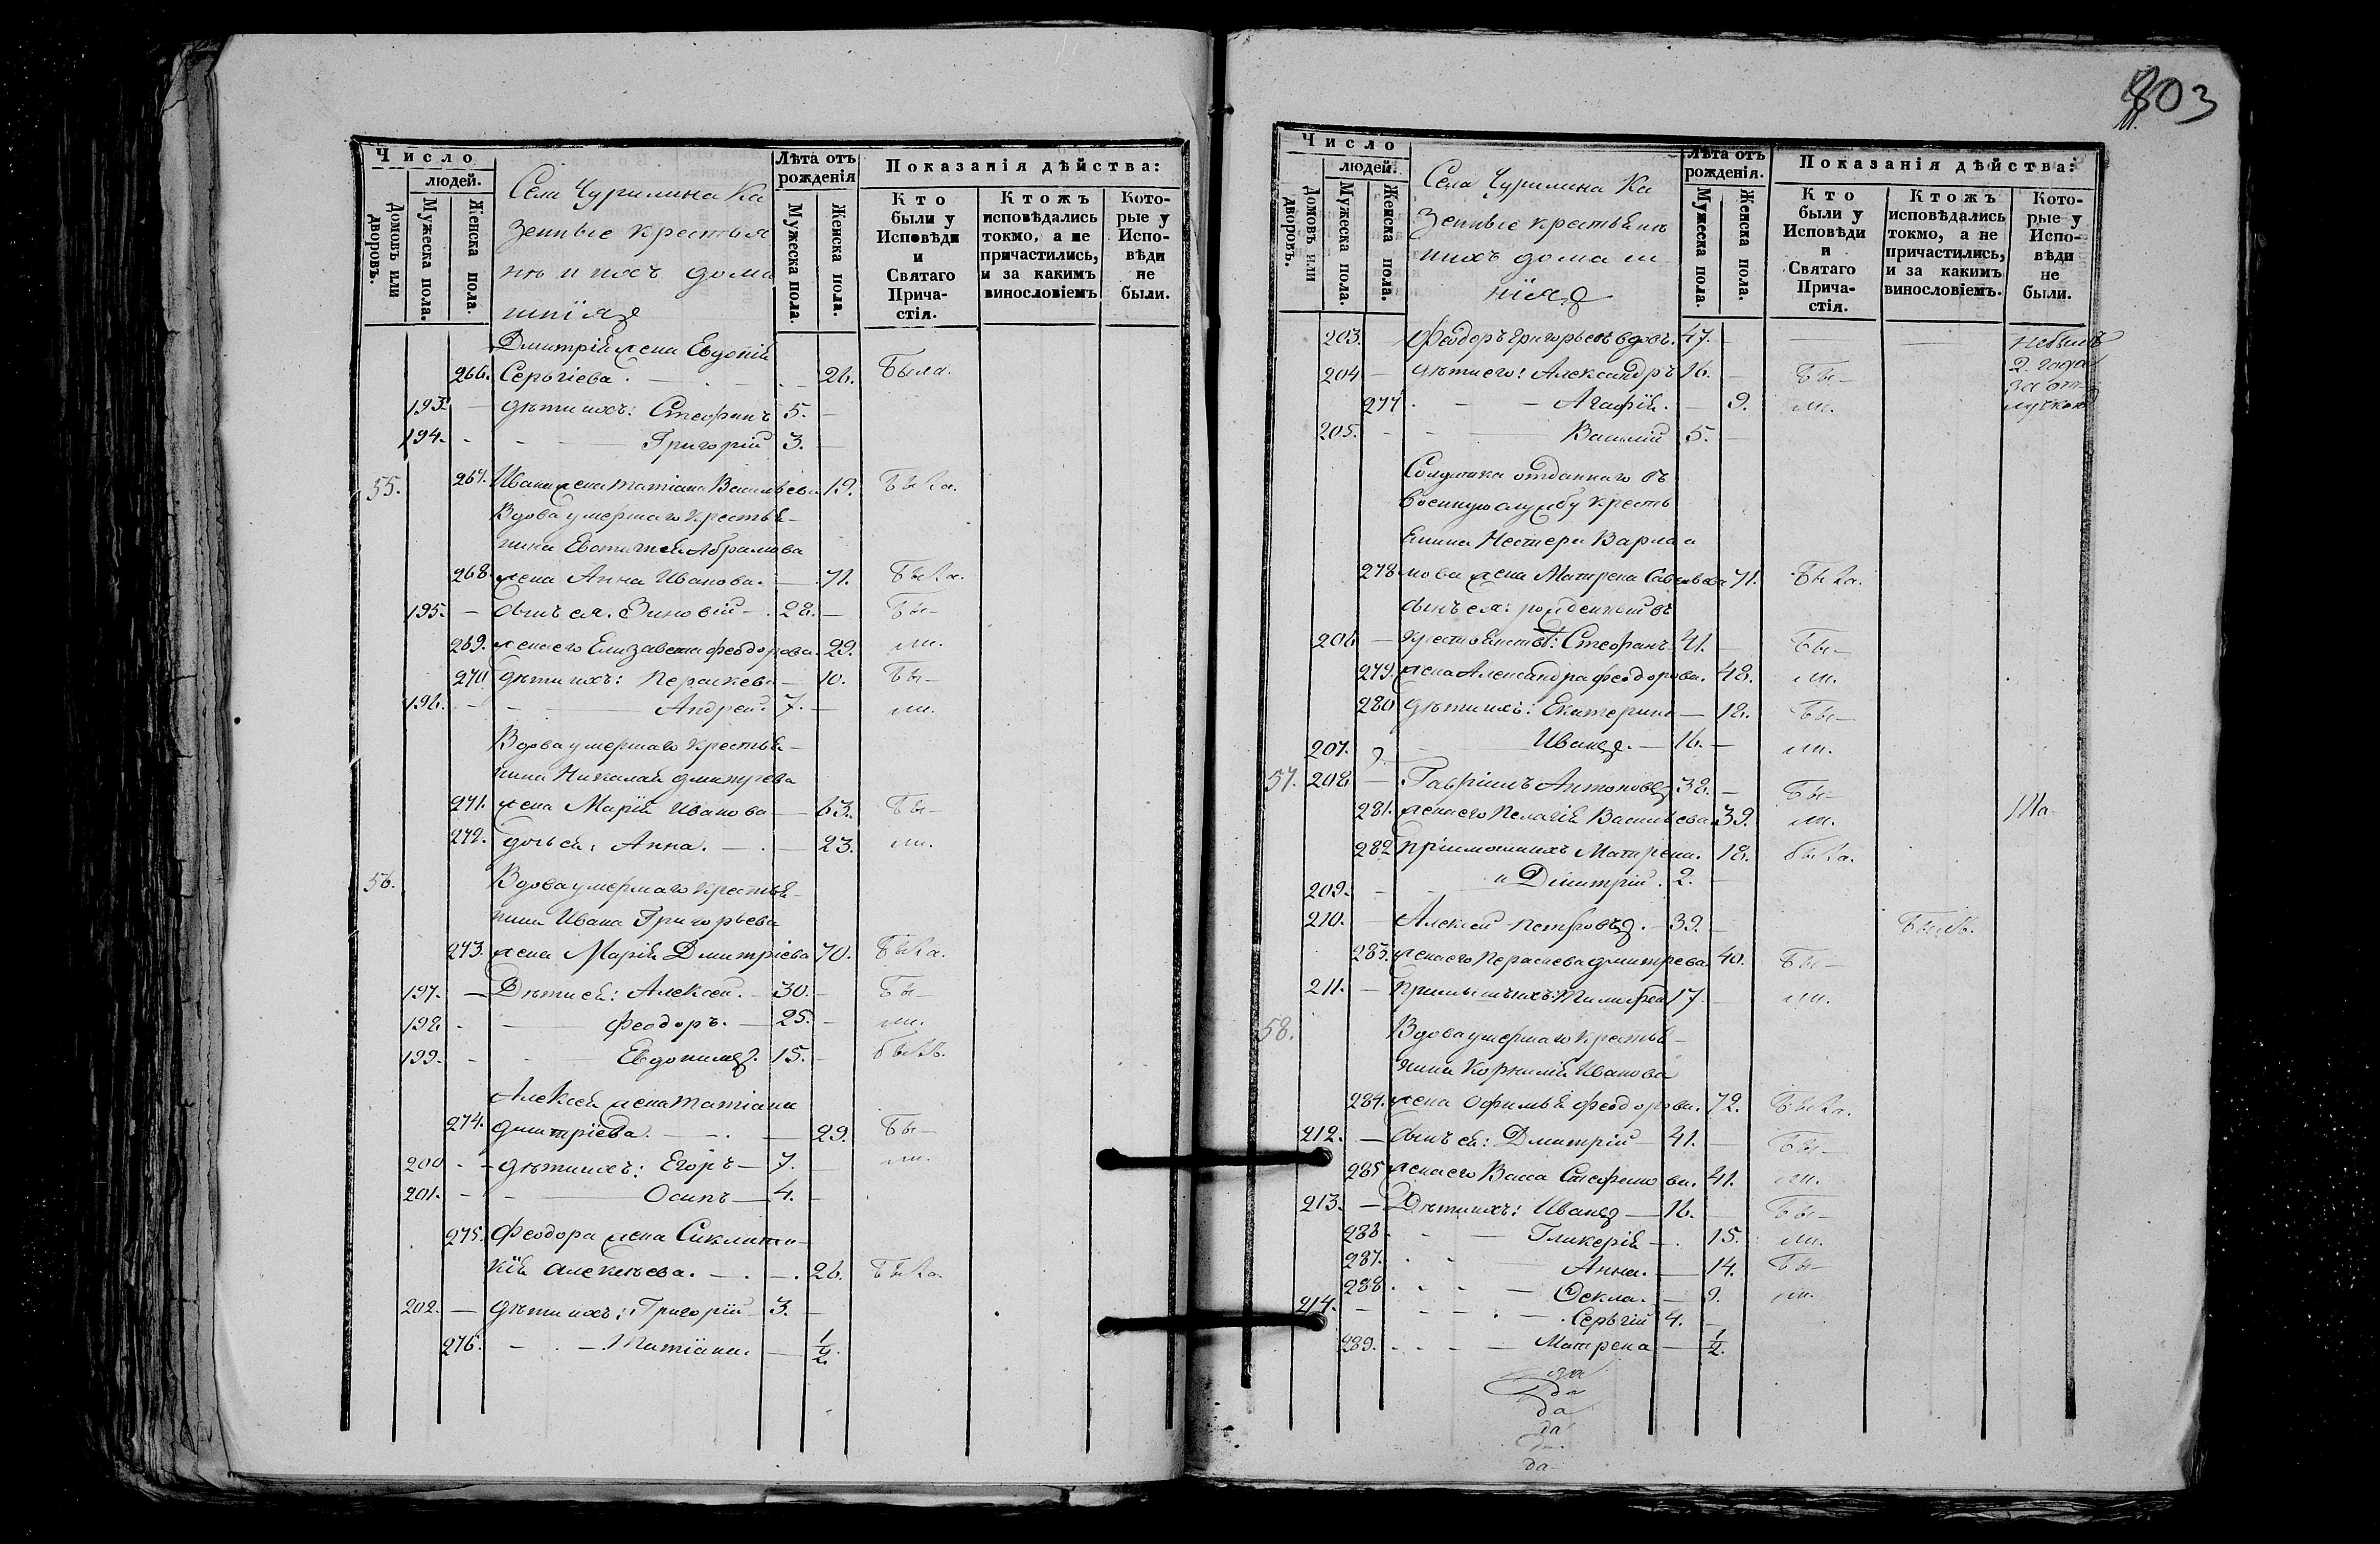 803
Число
людей.
Домовъ или дворовъ.
Мужеска пола.
Женска пола.
Села Чурилина Ка
зенные крестья
не и ихъ дома
шнія
Лѣта отъ рожденія
Мужеска пола.
Женска пола.
Показанія дѣйства:
Кто были у Исповѣди и Святаго Прича-стія.
Ктожъ исповѣдались токмо, а не причастились, и за какимъ винословіемъ
Кото-рые у Испо-вѣди не были.
Дмитрія жена Евдокія
266. Серьгіева. 26. Была.
193. дѣти ихъ: Стефанъ 5.
194. Григорій 3.
55. 267. Ивана жена Татіана Васильева 19. была.
Вдова умершаго крестья-
нина Абрамова
268. жена Анна Иванова. 71. была.
195. сынъ ея. Зиновій 28. бы-
269. жена его Елизавета Феодорова. 29. ли.
270 дѣти ихъ: Параскева 10. бы-
196. Андрей. 7. ли.
Вдова умершаго крестья-
нина Николая Дмитріева
271. жена Марія Иванова 63. бы-
272. дочь ея: Анна. 23. ли.
56. Вдова умершаго крестья-
нина Ивана Григорьева
273. жена Марія Дмитріева 70. была.
197. Дѣти ея: Алексей. 30. бы-
198. Феодоръ. 25. ли.
199. Евдокимъ. 15. былъ.
Алексея жена Татіана
274. Дмитріева. 29. бы-
200 дѣти ихъ: Егоръ 7. ли.
201. Осипъ 4.
275. Феодора жена Сиклити-
кія Алексеева. 26. была.
202. дѣти ихъ: Григорій 3.
276. Татіана. 1/2.
Число
людей.
Домовъ или дворовъ.
Мужеска пола.
Женска пола.
Села Чурилина Ка
зенные крестьяне
и ихъ домаш
нія
Лѣта отъ рожденія.
Мужеска пола.
Женска пола.
Показанія дѣйства:
Кто были у Исповѣди и Святаго Прича-стія.
Ктожъ исповѣдались токмо, а не причастились, и за какимъ винословіемъ.
Кото-рые у Испо-вѣди не были.
203. Феодоръ Григорьевъ вдовъ. 47. небылъ
2. года
204 дѣти его: Александръ 16. бы-
за от-
277 Агафія. 9. ли.
лучкою
205. Василій 5.
Солдатка отданнаго въ
военную службу кресть
янина Нестера Варла
278 мова жена Матрена Савельева 71. была.
сынъ ея: рожденный въ
206 крестьянствѣ: Стефанъ 41. бы-
279. жена Александра Феодорова. 48. ли.
280 дѣти ихъ: Екатерина 18. бы-
207. Иванъ. 16. ли.
57. 208 Гавріилъ Антоновъ 38. бы-
281. жена его Пелагія Васильева 39. ли.
282 Матрена. 18. была.
209. и Димитрій. 2.
210. Алексей Петровъ. 39. былъ.
283. жена его Параскева Дмитрева 40. бы-
211. Тимофей 17. ли.
58. Вдова умершаго крестья-
нина Корнилія Иванова
284. жена Офимья Феодорова. 72. была.
212. сынъ ея: Дмитрій 41. бы-
285 жена его Васса Стефанова. 41. ли.
213. Дѣти ихъ: Иванъ 16. бы-
286 Гликерія 15. ли.
287. Анна. 14. бы-
288 Фекла. 9. ли.
214. Серьгій 4.
289. Матрена 1/2.
да
да
да
да